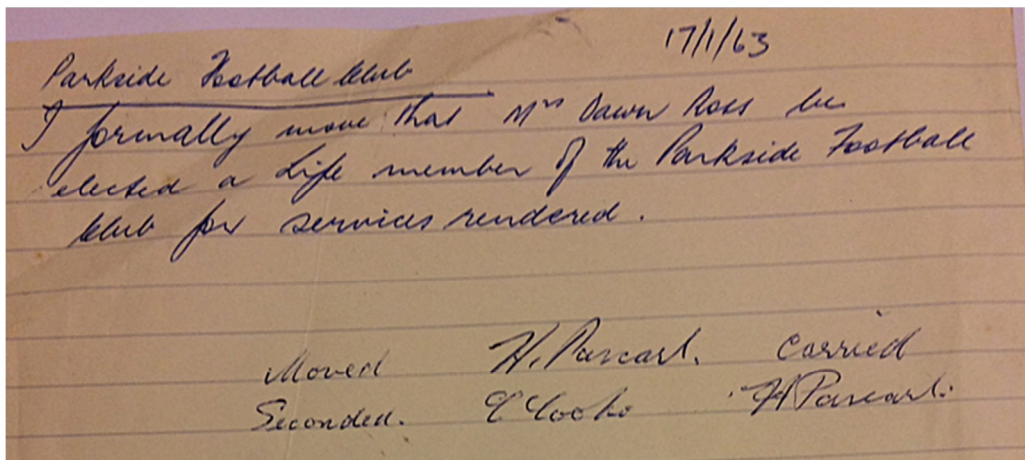 17/1/63
Parkside Football Club
I formally move that Mrs Dawn Ross be
elected a Life member of the Parkside Football
Club for services rendered.
Moved H. Pascarl. Carried
Seconded. H Pascarl.